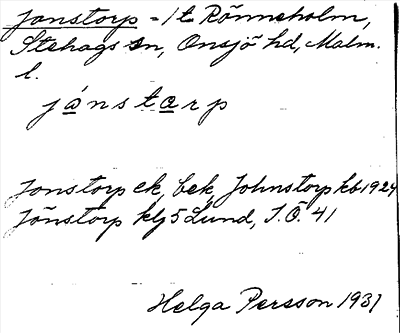 Jonstorp - 1 t. Rönneholm,
Stehags sn, Onsjö hd, Malm.
l.
jánstorp
Jonstorp ek, bek, Johnstorp kb 1924
Jönstorp klj 5 Lund, S.Ö. 41
Helga Persson 1931